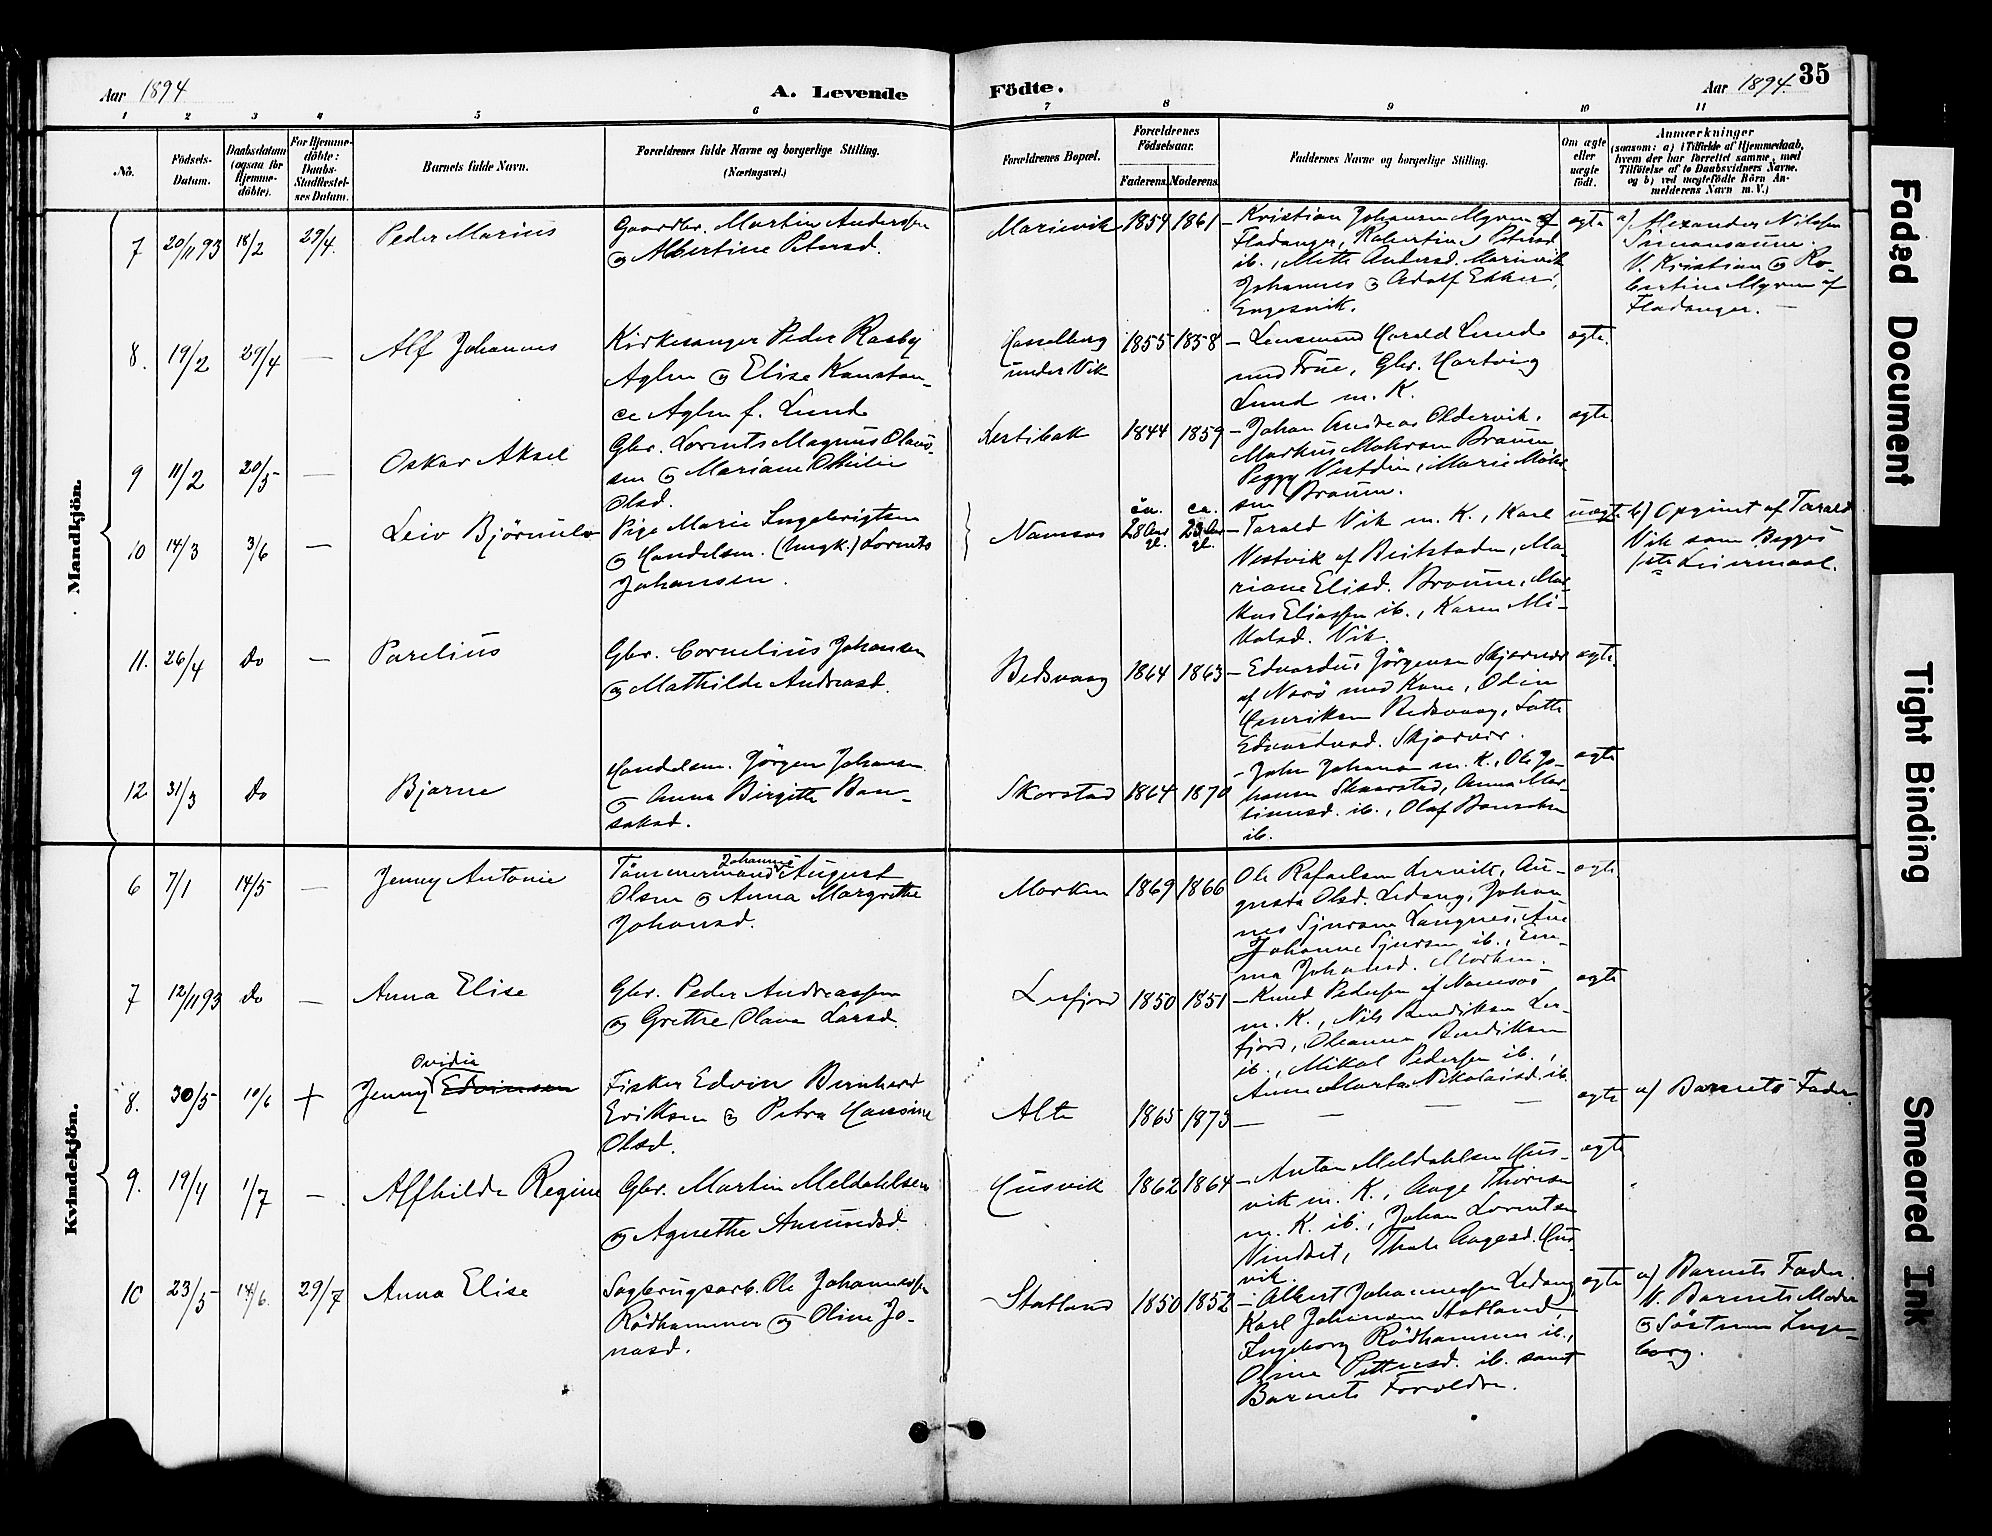 Aar 1894
A. Levende
Födte.
Aar 1894.
35
1 2 3 4 5 6 7 8 9 10 11
No.
Födsels-
Datum.
Daabsdatum
(ogsaa for
Hjemme-
döbte).
For Hjemme-
döbte:
Daabs-
Stadfæstel-
ses Datum.
Barnets fulde Navn.
Forældrenes fulde Navne og borgerlige Stilling.
(Næringsvei.)
Forældrenes Bopæl.
Forældrenes
Födselsaar.
Faderens. Moderens.
Faddernes Navne og borgerlige Stilling.
Om ægte
eller
uægte
födt.
Anmærkninger
(saasom: a) i Tilfælde af Hjemmedaab,
hvem der har forrettet samme, med
Tilföielse af to Daabsvidners Navne,
og b) ved uægtefödte Börn An-
melderens Navn m. V.)
Mandkjön.
7 20/11 93 18/2 29/4. Peder Marius
Gaardbr. Martin Anderssen
og Albertine Petersd.
Marievik 1854 1861
Kristian Johansen Myren af
Fladanger, Robertine Petersd.
ib., Mette Andersd. Marievik
Johannes og Adolf
Engesvik.
ægte
a) Alexander Nilssen
V. Kristian og Ro-
bertine Myren af
Fladanger.
8. 19/2 29/4 — Alf Johannes
Kirkesanger Peder Rasby
Aglen og Elise Konstan-
ce Aglen f. Lund
Hasselberg
under Vik
1855 1858
Lensmand Harald Lund
med Frue, Gbr. Hartvig
Lund m. K.
ægte
9 11/2 20/5 — Oskar Aksel
Gbr. Lorents Magnus Olaus-
sen og Mariane Otilie
Olsd.
1844 1859
Johan Andreas Oldervik.
Markus
Brauen.
ægte
10 14/3 3/6 — Leiv Björnulv
Pige Marie Ingebrigtsen
og Handelsm. (Ungk.) Lorents
Johansen.
Namsos
ca. ca.
28 Aar 23 Aar
gl. gl.
Tarald Vik m. K., Karl
Vestvik af Beitstaden, Ma-
riane Elisd. Brauen, Mar-
kus Eliassen ib., Karen Mi-
kalsd. Vik.
uægte
b) Opgivet af Tarald
Vik som Begges
1ste Leiermaal.
11. 26/4 Do — Parelius
Gbr. Cornelius Johansen
og Mathilde Andreasd.
Bedsvaag 1864 1863
Edvardus Jörgensen Skjærvær
af Nærö med Kone, Odin
Henriksen Bedsvaag, Lotte
Edvardusd. Skjærvær.
ægte
12 31/3 Do Bjarne
Handelsm. Jörgen Johansen
og Anna Birgitte Ban-
saksd.
Skorstad 1864 1870
John Johansen m. K., Ole Jo-
hansen Skaarstad, Anna Mar-
tinusd. ib., Olaf Bansaksen
ib.
ægte
Kvindekjön.
6 7/1 14/5 — Jenny Antonie
Johannes
Tömmermand August
Olsen og Anna Margrethe
Johansd.
Morken 1869 1866
Ole Rafaelsen Lervik, Au-
gusta Olsd. Ledang, Johan-
nes Sjursen Langnes,
Johanne Sjursen ib., Em-
ma Johansd. Morken.
ægte
7 12/11 93 Do — Anna Elise
Gbr. Peder Andreassen
og Grethe Olava Larsd.
Lerfjord 1850 1851
Knud Pedersen af Namsos
m. K., Nils Bendiksen Ler-
fjord, Oleanna Bendiksen
ib., Mikal Pedersen ib.,
Anne Marta Nikolaisd. ib.
ægte
8. 30/5 10/6 + Ovidia
Jenny Edvinsen
Fisker Edvin Bernhard
Eriksen og Petra Hansine
Olsd.
Alte 1865 1873 — — — —
ægte
a) Barnets Fader
9. 19/4 1/7 — Alfhilde Regine
Gbr. Martin Meldahlsen
og Agnethe Amundsd.
Husvik 1862 1864
Anton Meldahlsen Hus-
vik m. K., Aage Thoresen
m. K. ib., Johan Lorentsen
Vindset, Thale Aagesd. Hus-
vik.
ægte
10 23/5 14/6. 29/7 Anna Elise
Sagbrugsarb. Ole Johannessen
Rödhammer og Oline Jo-
nasd.
Statland 1850 1852
Albert Johannessen Ledang,
Karl Johansen Statland,
Ingeborg Rödhammer ib.,
Oline Pettersd. ib. samt
Barnets Forældre.
ægte
a) Barnets Fader.
V. Barnets Moder
og Söstrene Inge-
borg.
Faded Document
Tight Binding
Smeared Ink